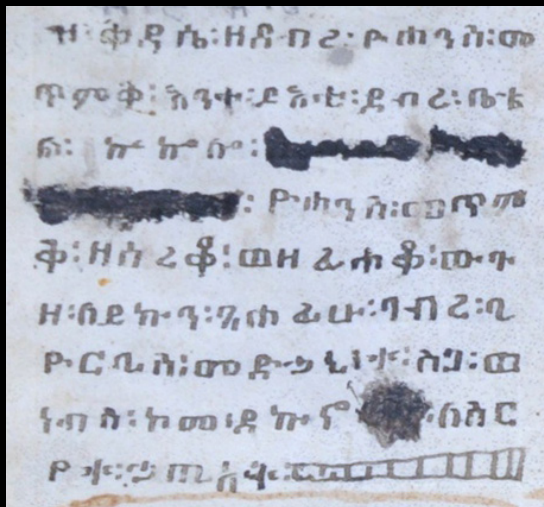 ዝ፡ ቅዳሴ፡ ዘደብረ፡ ዮሐንስ፡ መ
ጥምቅ፡ እንተ፡ ይእቲ፡ ደብረ፡
ዮሐንስ፡ መጥም
ቅ፡ ዘሰረቆ፡ ወዘፈሐቆ፡ ውጉ
ዘ፡ ለይኩን፡ ጸሐፊሁ፡ ገብረ፡ ጊ
ዮርጊስ፡ መድኃኒቱ፡ ወ
ነብስ፡ ከመ፡ ይኩኖ ለስር
የተ፡ ኃጢአቱ፡